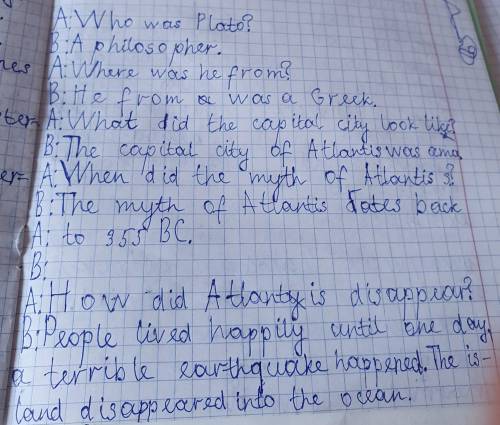 A: Who was Plato?
B: A philosopher.
A: Where was he from?
B: He from a was a Greek.
A: What did the capital city look like?
B: The capital city of Atlantis was ama
A: When did the myth of Atlantis s?
B: The myth of Atlantis dates back
A: to 355 BC.
B:
A: How did Atlantis disappear?
B: People lived happily until one day,
a terrible earthquake happened. The is-
land disappeared into the ocean.